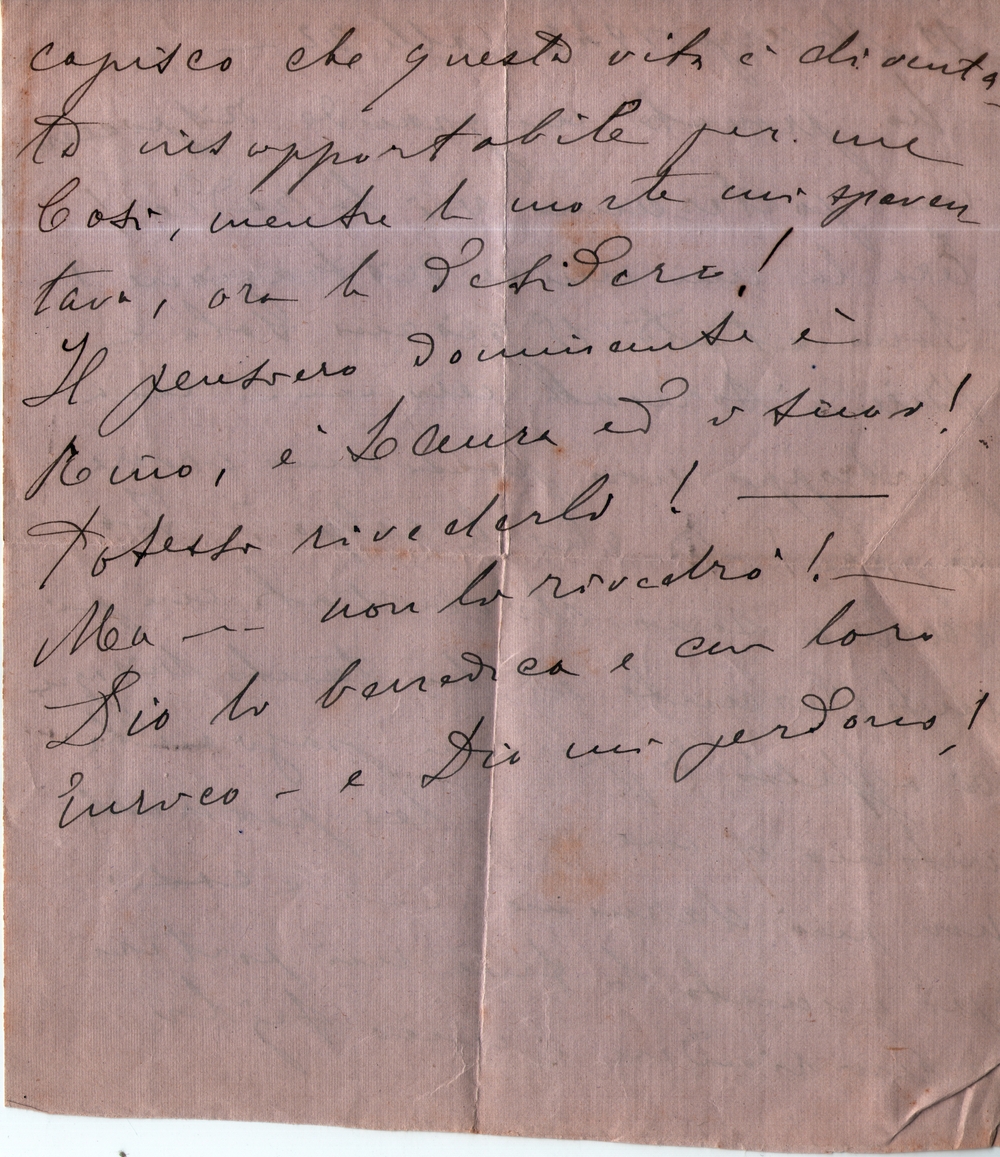 capisco che questa vita è diventa-
ta insopportabile per me
Così, mentre la morte mi spaven
tava, ora la desidero!
Il pensiero dominante è
Nino, è Laura ed i suoi!
Potessi rivederlo! —
Ma —— non lo rivedrò! —
Dio lo benedica e con loro
Enrico – e Dio mi perdono!